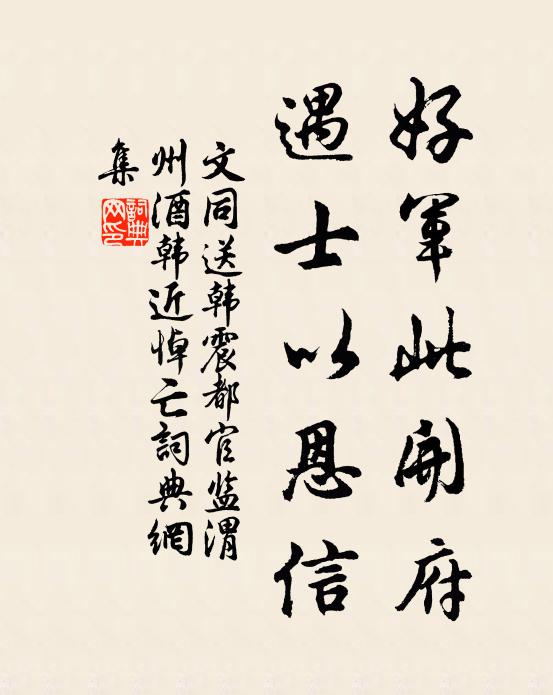 好军此開府
遇士以恩信
文同送韩震都官监渭
州酒韩近悼亡詞典網
集
詞典网印